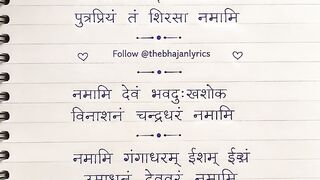 पुत्रप्रियं तं शिरसा नमामि
Follow @thebhajanlyrics
नमामि देवं भवदुःखशोक
विनाशनं चन्द्रधरं नमामि
नमामि गंगाधरम् ईशम्
देववरं नमामि